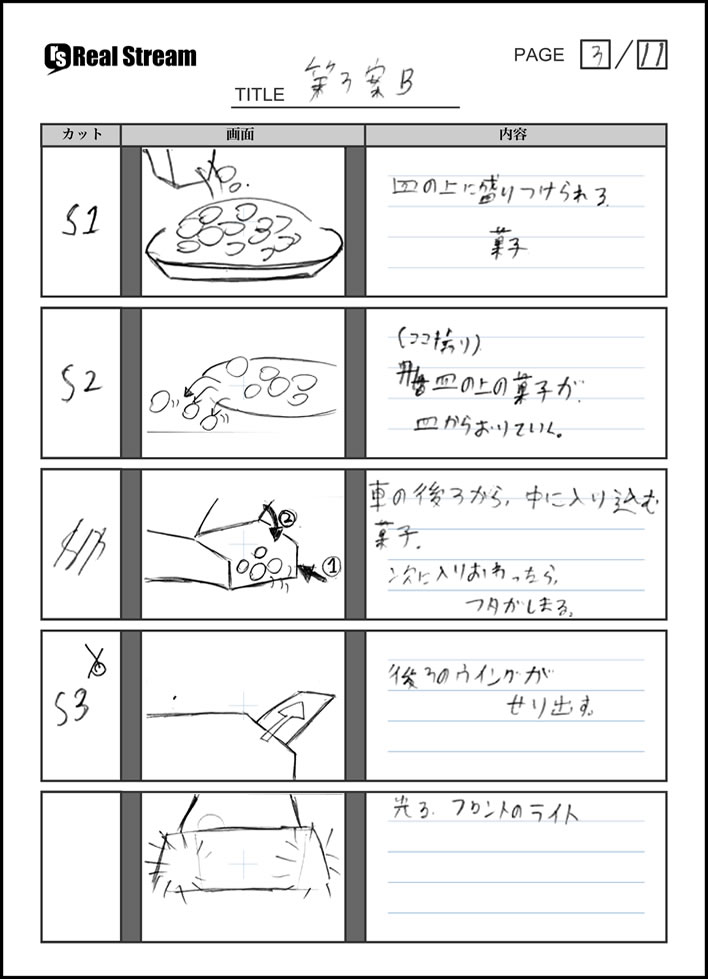 rs Real Stream
PAGE 3/11
TITLE 第3案B
カット 画面 内容
S1
皿の上に盛りつけられる
菓子
S2
(ココ撮り)
皿の上の菓子が
皿からおりていく。
②
①
車の後ろから, 中に入り込む
菓子.
次に入りおわったら,
フタがしまる。
S3
後ろのウイングが
せり出す。
光る. フロントのライト